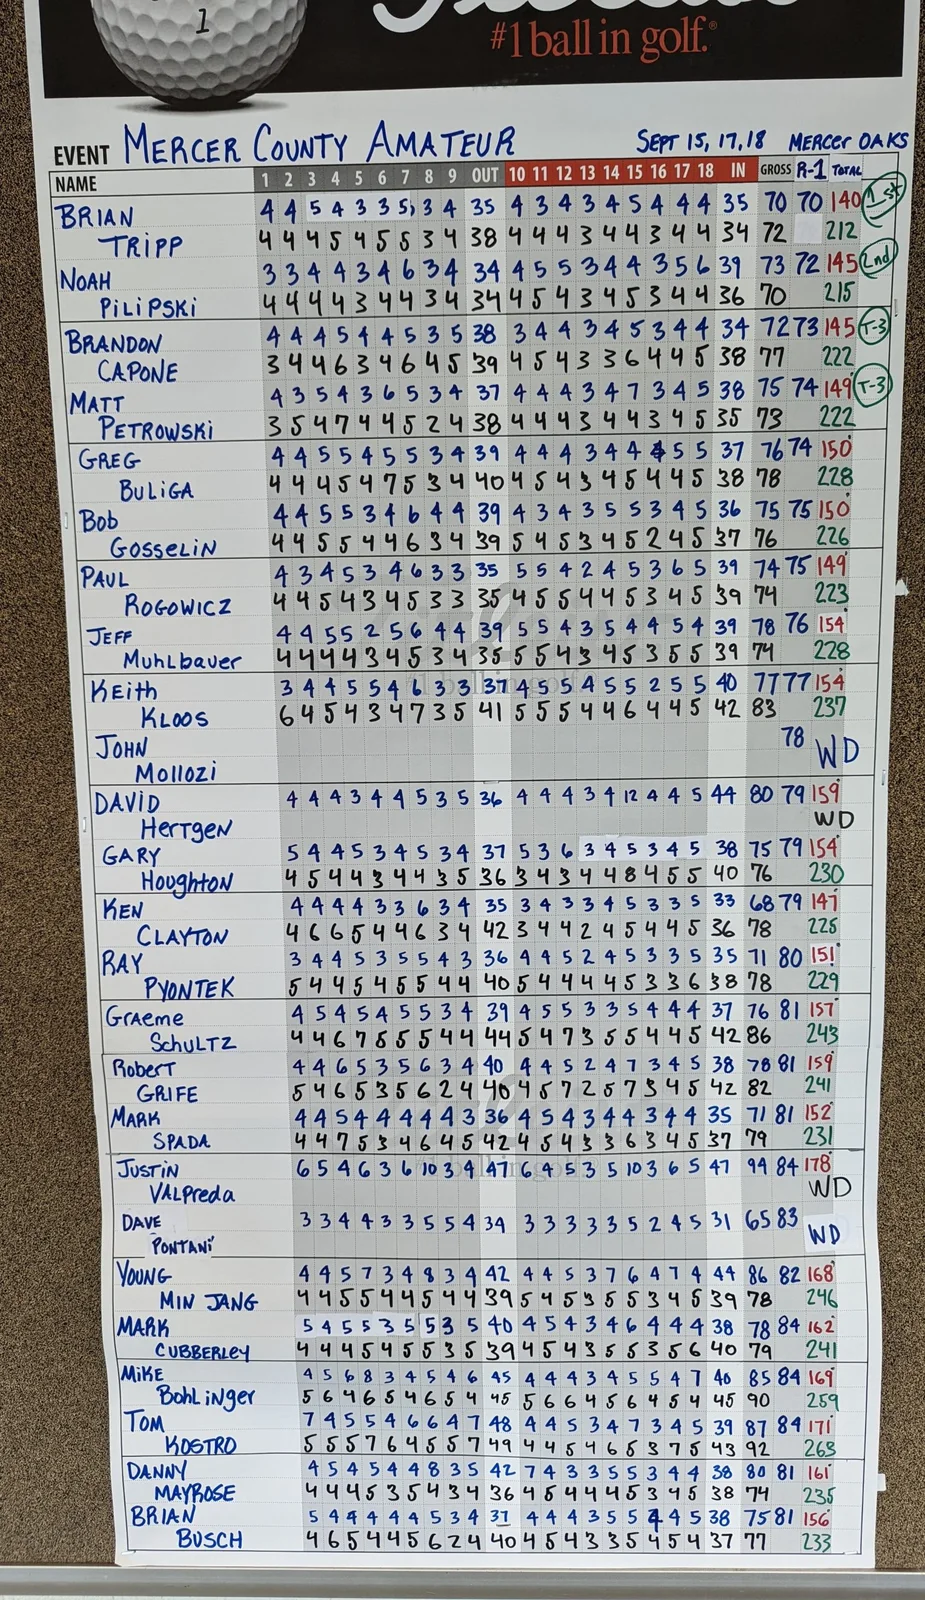 1
#1 ball in golf.®
EVENT MERCER COUNTY AMATEUR SEPT 15, 17, 18 MERCER OAKS
NAME 1 2 3 4 5 6 7 8 9 OUT 10 11 12 13 14 15 16 17 18 IN GROSS R-1 TOTAL
BRIAN 4 4 5 4 3 3 5 3 4 35 4 3 4 3 4 5 4 4 4 35 70 70 140 1st
TRIPP 4 4 4 5 4 5 5 3 4 38 4 4 4 3 4 4 3 4 4 34 72 212
NOAH 3 3 4 4 3 4 6 3 4 34 4 5 5 3 4 4 3 5 6 39 73 72 145 2nd
PILIPSKI 4 4 4 4 3 4 4 3 4 34 4 5 4 3 4 5 3 4 4 36 70 215
BRANDON 4 4 4 5 4 4 5 3 5 38 3 4 4 3 4 5 3 4 4 34 72 73 145 T-3
CAPONE 3 4 4 6 3 4 6 4 5 39 4 5 4 3 3 6 4 4 5 38 77 222
MATT 4 3 5 4 3 6 5 3 4 37 4 4 4 3 4 7 3 4 5 38 75 74 149 T-3
PETROWSKI 3 5 4 7 4 4 5 2 4 38 4 4 4 3 4 4 3 4 5 35 73 222
GREG 4 4 5 5 4 5 5 3 4 39 4 4 4 3 4 4 4 5 5 37 76 74 150
BULIGA 4 4 4 5 4 7 5 3 4 40 4 5 4 3 4 5 4 4 5 38 78 228
Bob 4 4 5 5 3 4 6 4 4 39 4 3 4 3 5 5 3 4 5 36 75 75 150
GOSSELIN 4 4 5 5 4 4 6 3 4 39 5 4 5 3 4 5 2 4 5 37 76 226
PAUL 4 3 4 5 3 4 6 3 3 35 5 5 4 2 4 5 3 6 5 39 74 75 149
ROGOWICZ 4 4 5 4 3 4 5 3 3 35 4 5 5 4 4 5 3 4 5 39 74 223
JEFF 4 4 5 5 2 5 6 4 4 39 5 5 4 3 5 4 4 5 4 39 78 76 154
Muhlbauer 4 4 4 4 3 4 5 3 4 35 5 5 4 3 4 5 3 5 5 39 74 228
KEith 3 4 4 5 5 4 6 3 3 37 4 5 5 4 5 5 2 5 5 40 77 77 154
KLOOS 6 4 5 4 3 4 7 3 5 41 5 5 5 4 4 6 4 4 5 42 83 237
JOHN 78 WD
Mollozi
DAVID 4 4 4 3 4 4 5 3 5 36 4 4 4 3 4 12 4 4 5 44 80 79 159
HERTGEN WD
GARY 5 4 4 5 3 4 5 3 4 37 5 3 6 3 4 5 3 4 5 38 75 79 154
Houghton 4 5 4 4 3 4 4 3 5 36 3 4 3 4 4 8 4 5 5 40 76 230
KEN 4 4 4 4 3 3 6 3 4 35 3 4 3 3 4 5 3 3 5 33 68 79 147
CLAYTON 4 6 6 5 4 4 6 3 4 42 3 4 4 2 4 5 4 4 5 36 78 225
RAY 3 4 4 5 3 5 5 4 3 36 4 4 5 2 4 5 3 3 5 35 71 80 151
PYONTEK 5 4 4 5 4 5 5 4 4 40 5 4 4 4 4 5 3 3 6 38 78 229
Graeme 4 5 4 5 4 5 5 3 4 39 4 5 5 3 3 5 4 4 4 37 76 81 157
SchuLTZ 4 4 6 7 5 5 5 4 4 44 5 4 7 3 5 5 4 4 5 42 86 243
Robert 4 4 6 5 3 5 6 3 4 40 4 4 5 2 4 7 3 4 5 38 78 81 159
GRIFE 5 4 6 5 3 5 6 2 4 40 4 5 7 2 5 7 3 4 5 42 82 241
MARK 4 4 5 4 4 4 4 4 3 36 4 5 4 3 4 4 3 4 4 35 71 81 152
SPADA 4 4 7 5 3 4 6 4 5 42 4 5 4 3 3 6 3 4 5 37 79 231
JUSTIN 6 5 4 6 3 6 10 3 4 47 6 4 5 3 5 10 3 6 5 47 94 84 178
VALPreda WD
DAVE 3 3 4 4 3 3 5 5 4 34 3 3 3 3 3 5 2 4 5 31 65 83
PONTANI WD
YOUNG 4 4 5 7 3 4 8 3 4 42 4 4 5 3 7 6 4 7 4 44 86 82 168
MIN JANG 4 4 5 5 4 4 5 4 4 39 5 4 5 3 5 5 3 4 5 39 78 246
MARK 5 4 5 5 3 5 5 3 5 40 4 5 4 3 4 6 4 4 4 38 78 84 162
CUBBERLEY 4 4 4 5 4 5 5 3 5 39 4 5 4 3 5 5 3 5 6 40 79 241
MIKE 4 5 6 8 3 4 5 4 6 45 4 4 4 3 4 5 5 4 7 40 85 84 169
BohLinger 5 6 4 6 5 4 6 5 4 45 5 6 6 4 5 6 4 5 4 45 90 259
TOM 7 4 5 5 4 6 6 4 7 48 4 4 5 3 4 7 3 4 5 39 87 84 171
KOSTRO 5 5 5 7 6 4 5 5 7 49 4 4 5 4 6 5 3 7 5 43 92 263
DANNY 4 5 4 5 4 4 8 3 5 42 7 4 3 3 5 5 3 4 4 38 80 81 161
MAYROSE 4 4 4 5 3 5 4 3 4 36 4 5 4 4 4 5 3 4 5 38 74 235
BRIAN 5 4 4 4 4 4 5 3 4 37 4 4 4 3 5 5 4 4 5 38 75 81 156
BUSCH 4 6 5 4 4 5 6 2 4 40 4 5 4 3 3 5 4 5 4 37 77 233